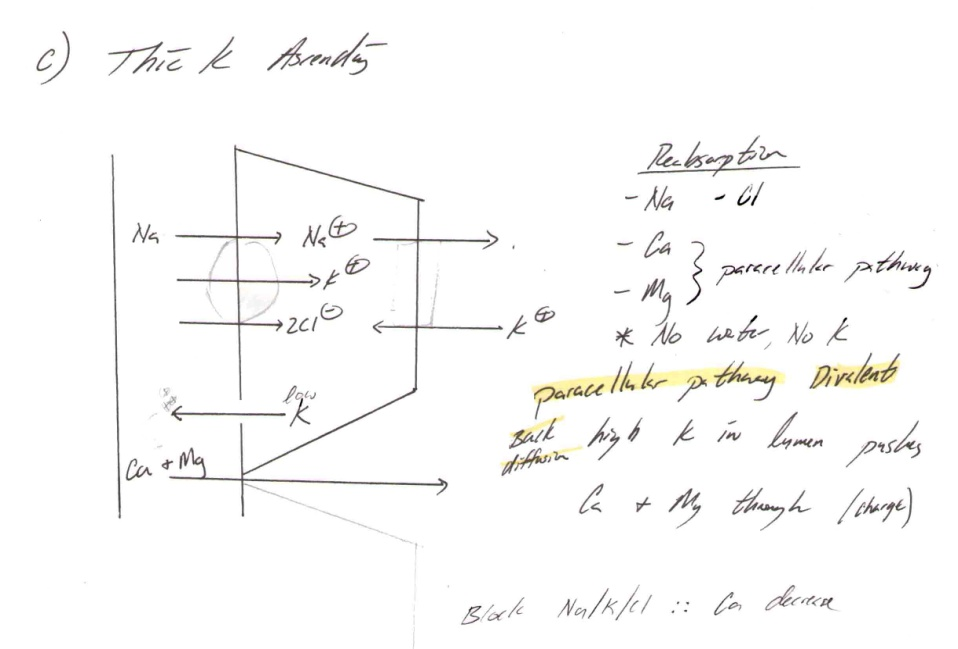 c) Thick Ascending
Na → Na⊕ →
→ K⊕
→ 2Cl⊖ ← K⊕
low
← K
Ca + Mg →
Reabsorption
- Na - Cl
- Ca
- Mg } paracellular pathway
* No water, No K
paracellular pathway Divalent
Back diffusion high K in lumen pushes
Ca + Mg through (charge)
Block Na/K/Cl :: Ca decrease